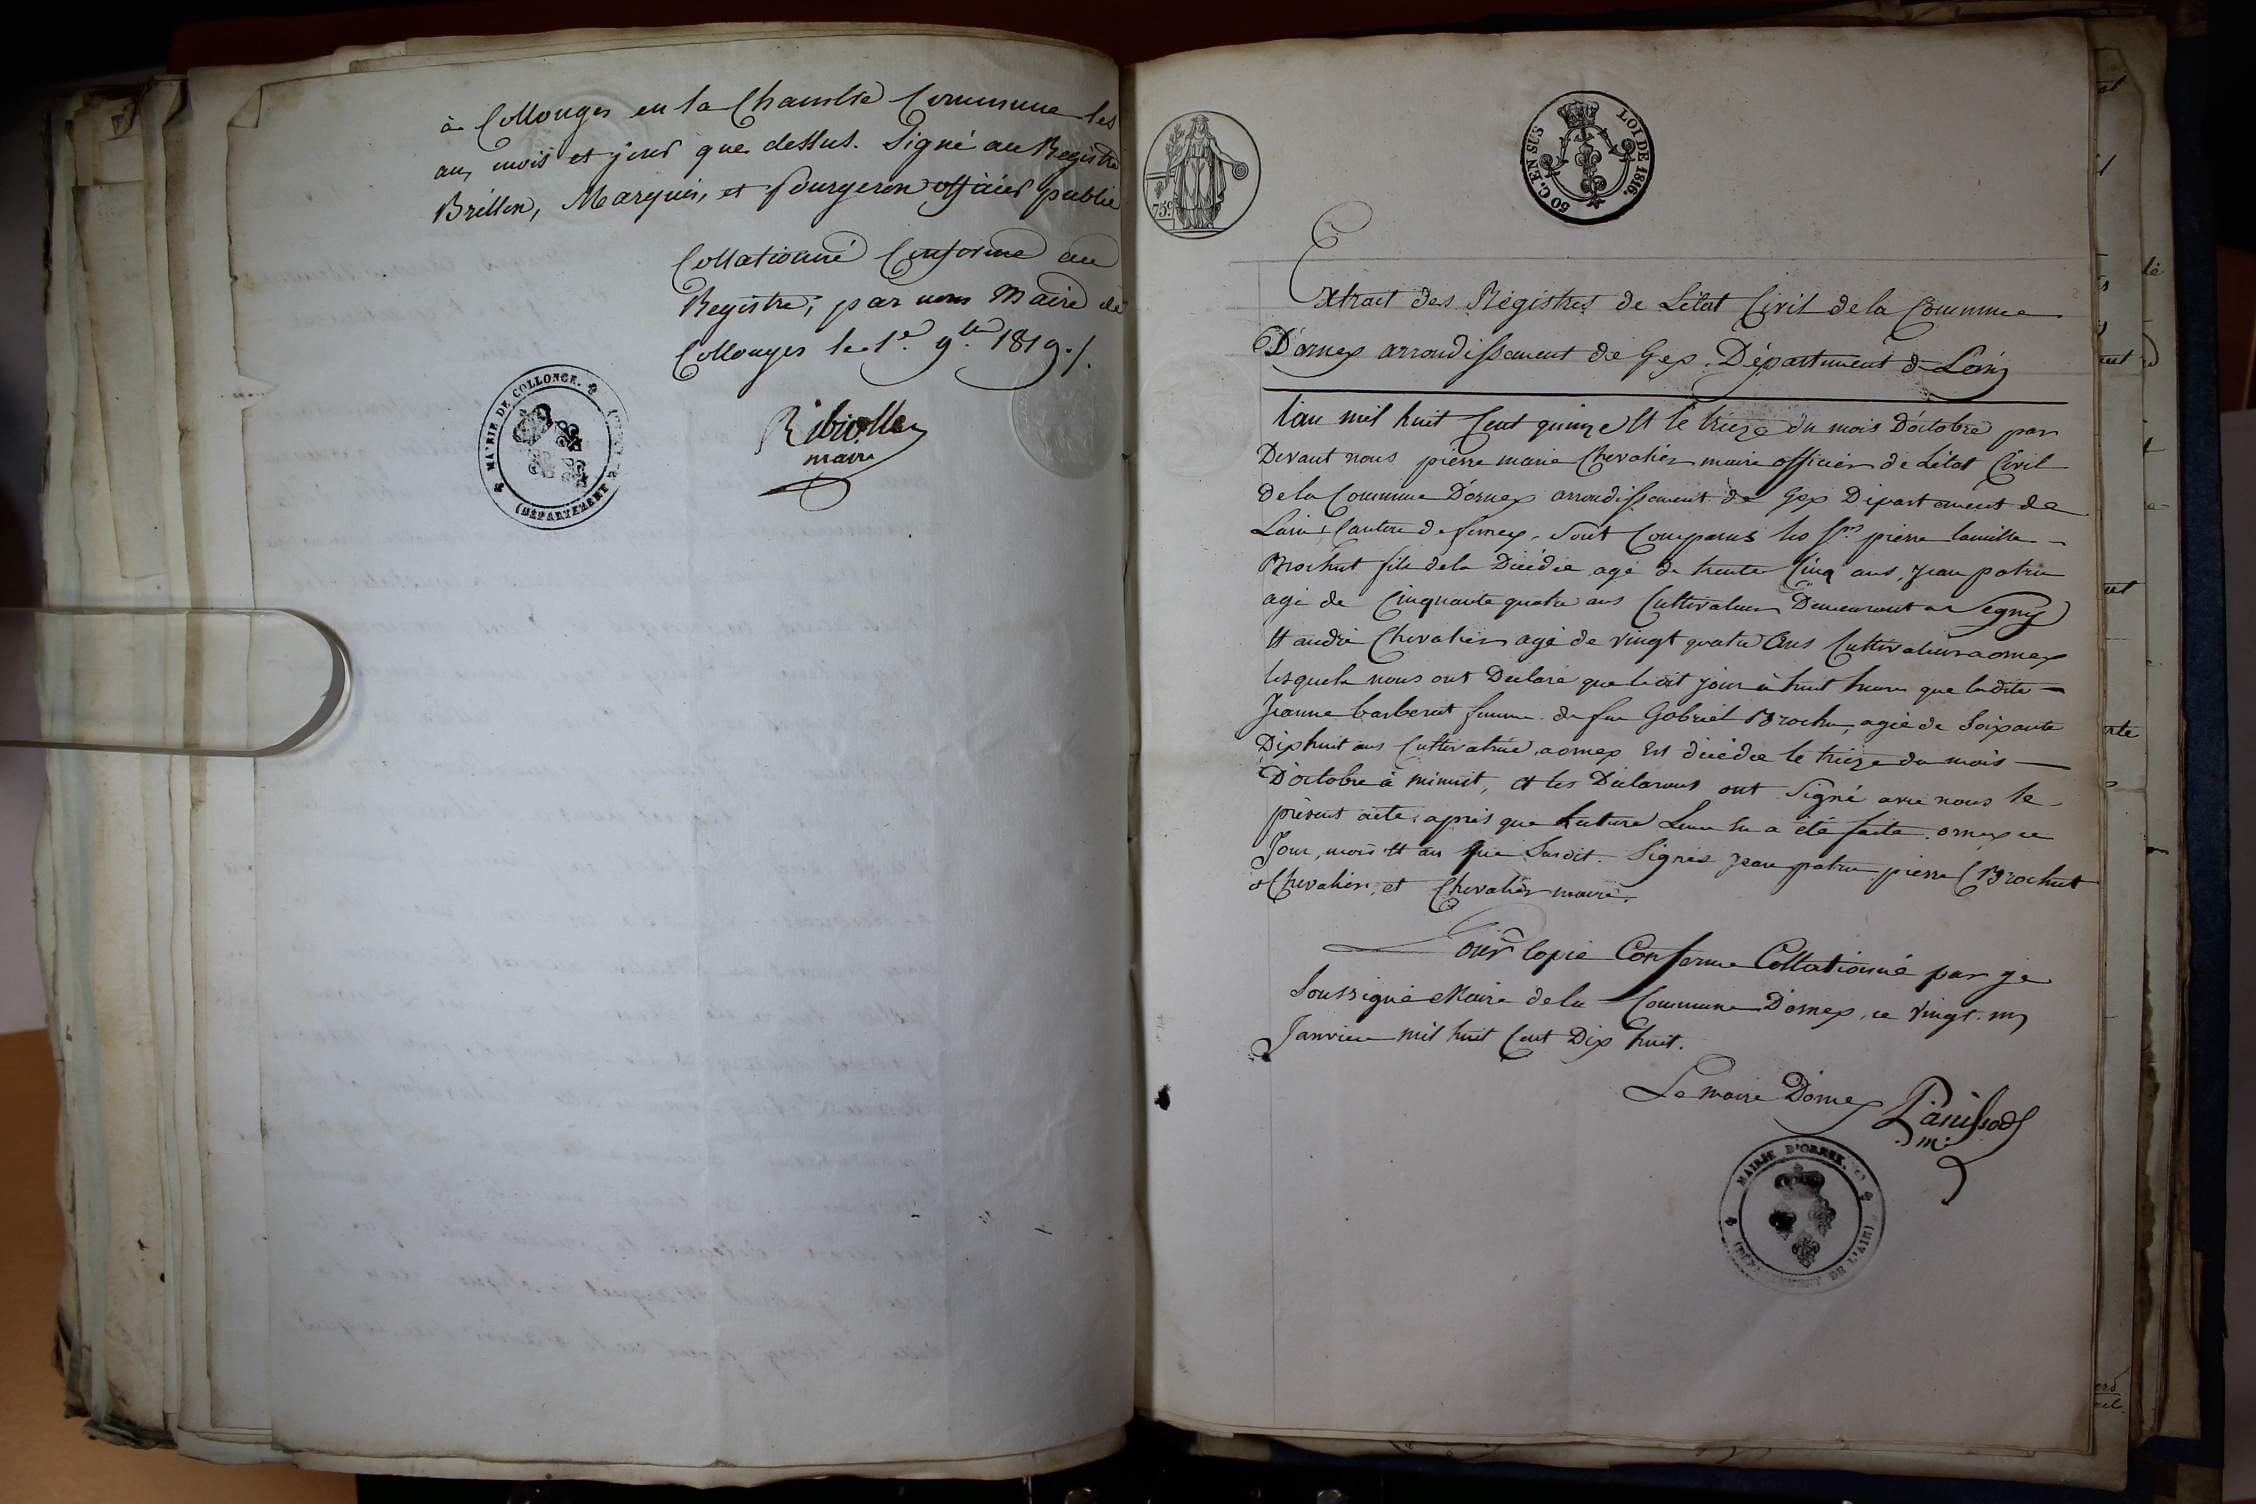 à Collonges en la Chambre Commune les
an, mois et jour que dessus. Signé au Registre
Brillon, Marquis, et fourgeron officier public
Collationné Conforme au
Registre, par nous Maire de
Collonges le 1er 9bre 1819./.
MAIRIE DE COLLONGE.
(DÉPARTEMENT
maire
75c
LOI DE 1816.
50 C. EN SUS
Extrait des Régistres de L'état Civil de la Commune
D'ornex arrondissement de Gex. Département de L'ain
L'an mil huit Cent quinze Et le treize du mois D'octobre par
Devant nous pierre marie Chevalier maire officier de L'état Civil
de la Commune D'ornex arrondissement de Gex Département de
Lain, Canton de ferney, sont Comparus les Srs pierre Camille
Brochut fils de la Décédée agé de trente Cinq ans, Jean patru
agé de Cinquante quatre ans Cultivateur Demeurant a Segny
Et andré Chevalier agé de vingt quatre Ans Cultivateur a ornex
lesquels nous ont Déclaré que ledit jour à huit heures que ladite
Jeanne barberat femme de feu Gabriel Brochu, agée de Soixante
Dix huit ans Cultivatrice, a ornex Est décédée le treize du mois
D'octobre à minuit, et les Déclarans ont Signé avec nous le
présent acte après que Lecture Leur En a été faite. ornex ce
Jour, mois Et an que Susdit. Signés Jean patru pierre C Brochut
a Chevalier, et Chevalier maire.
Pour Copie Conforme Collationné par je
Soussigné Maire de la Commune D'ornex, ce vingt un
Janvier mil huit Cent Dix huit.
Le maire D'ornex Panissod
m.
MAIRIE D'ORNEX.
(DÉPARTEMENT DE L'AIN)